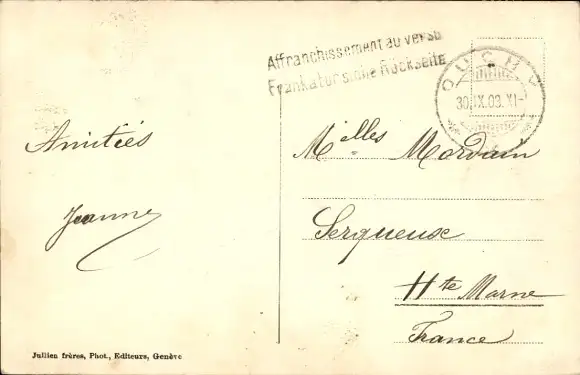 Affranchissement au verso
Frankatur siehe Rückseite
OUCHY
30.IX.09.XI-
Amitiés
Jeanne
Mlles Mordain
Serqueux
Hte Marne
France
Jullien frères, Phot., Editeurs, Genève